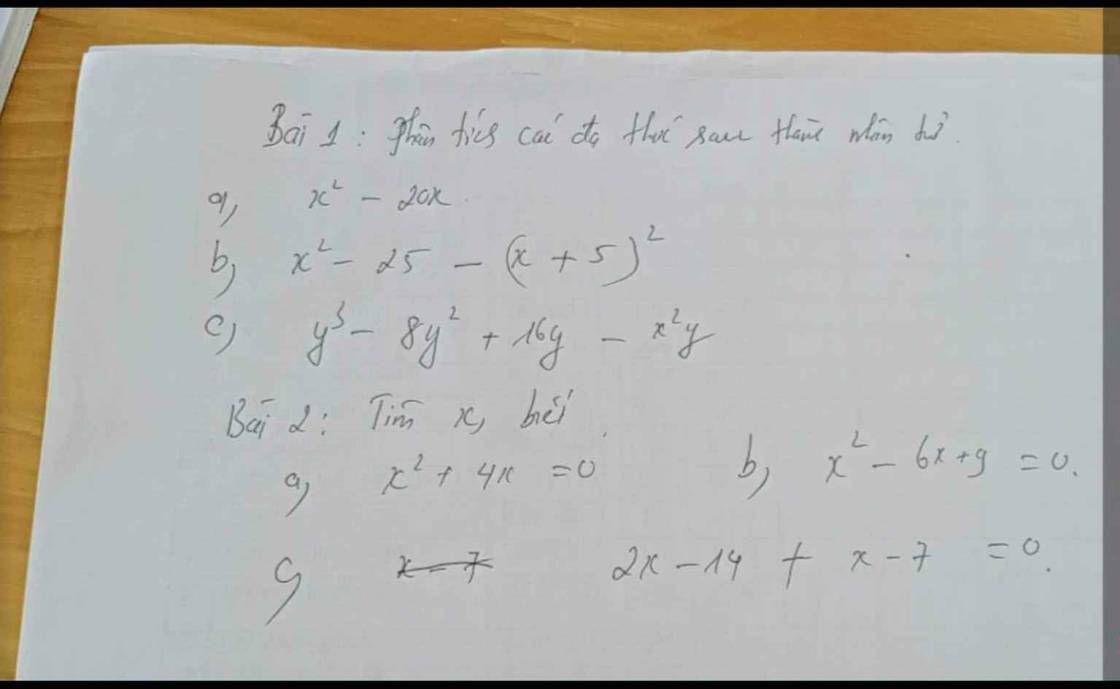 Bài 1 : Phân tích các đa thức sau thành nhân tử.
a, x² - 20x
b, x² - 25 - (x + 5)²
c, y³ - 8y² + 16y - x²y
Bài 2 : Tìm x, biết
a, x² + 4x = 0 b, x² - 6x + 9 = 0.
c, x - 7 2x - 14 + x - 7 = 0.